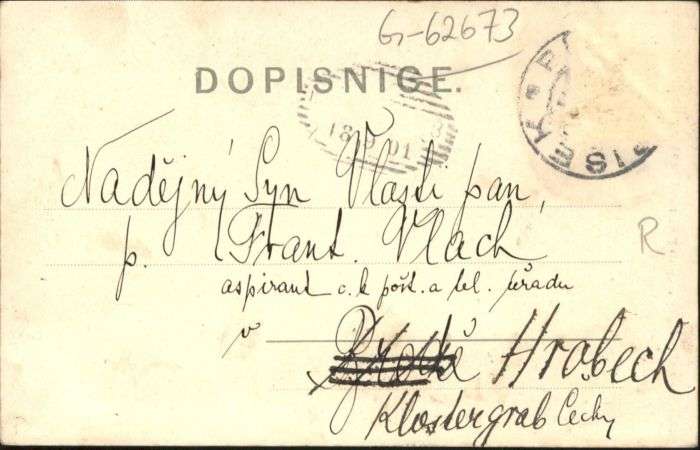 G-62673
DOPISNICE.
18 9 01
PISEK
Nadějný Syn Vlasti pan,
p. Frant. Vlach
R
aspirant c. k. pošt. a tel. úřadu
v Hrobech
Klostergrab Čechy